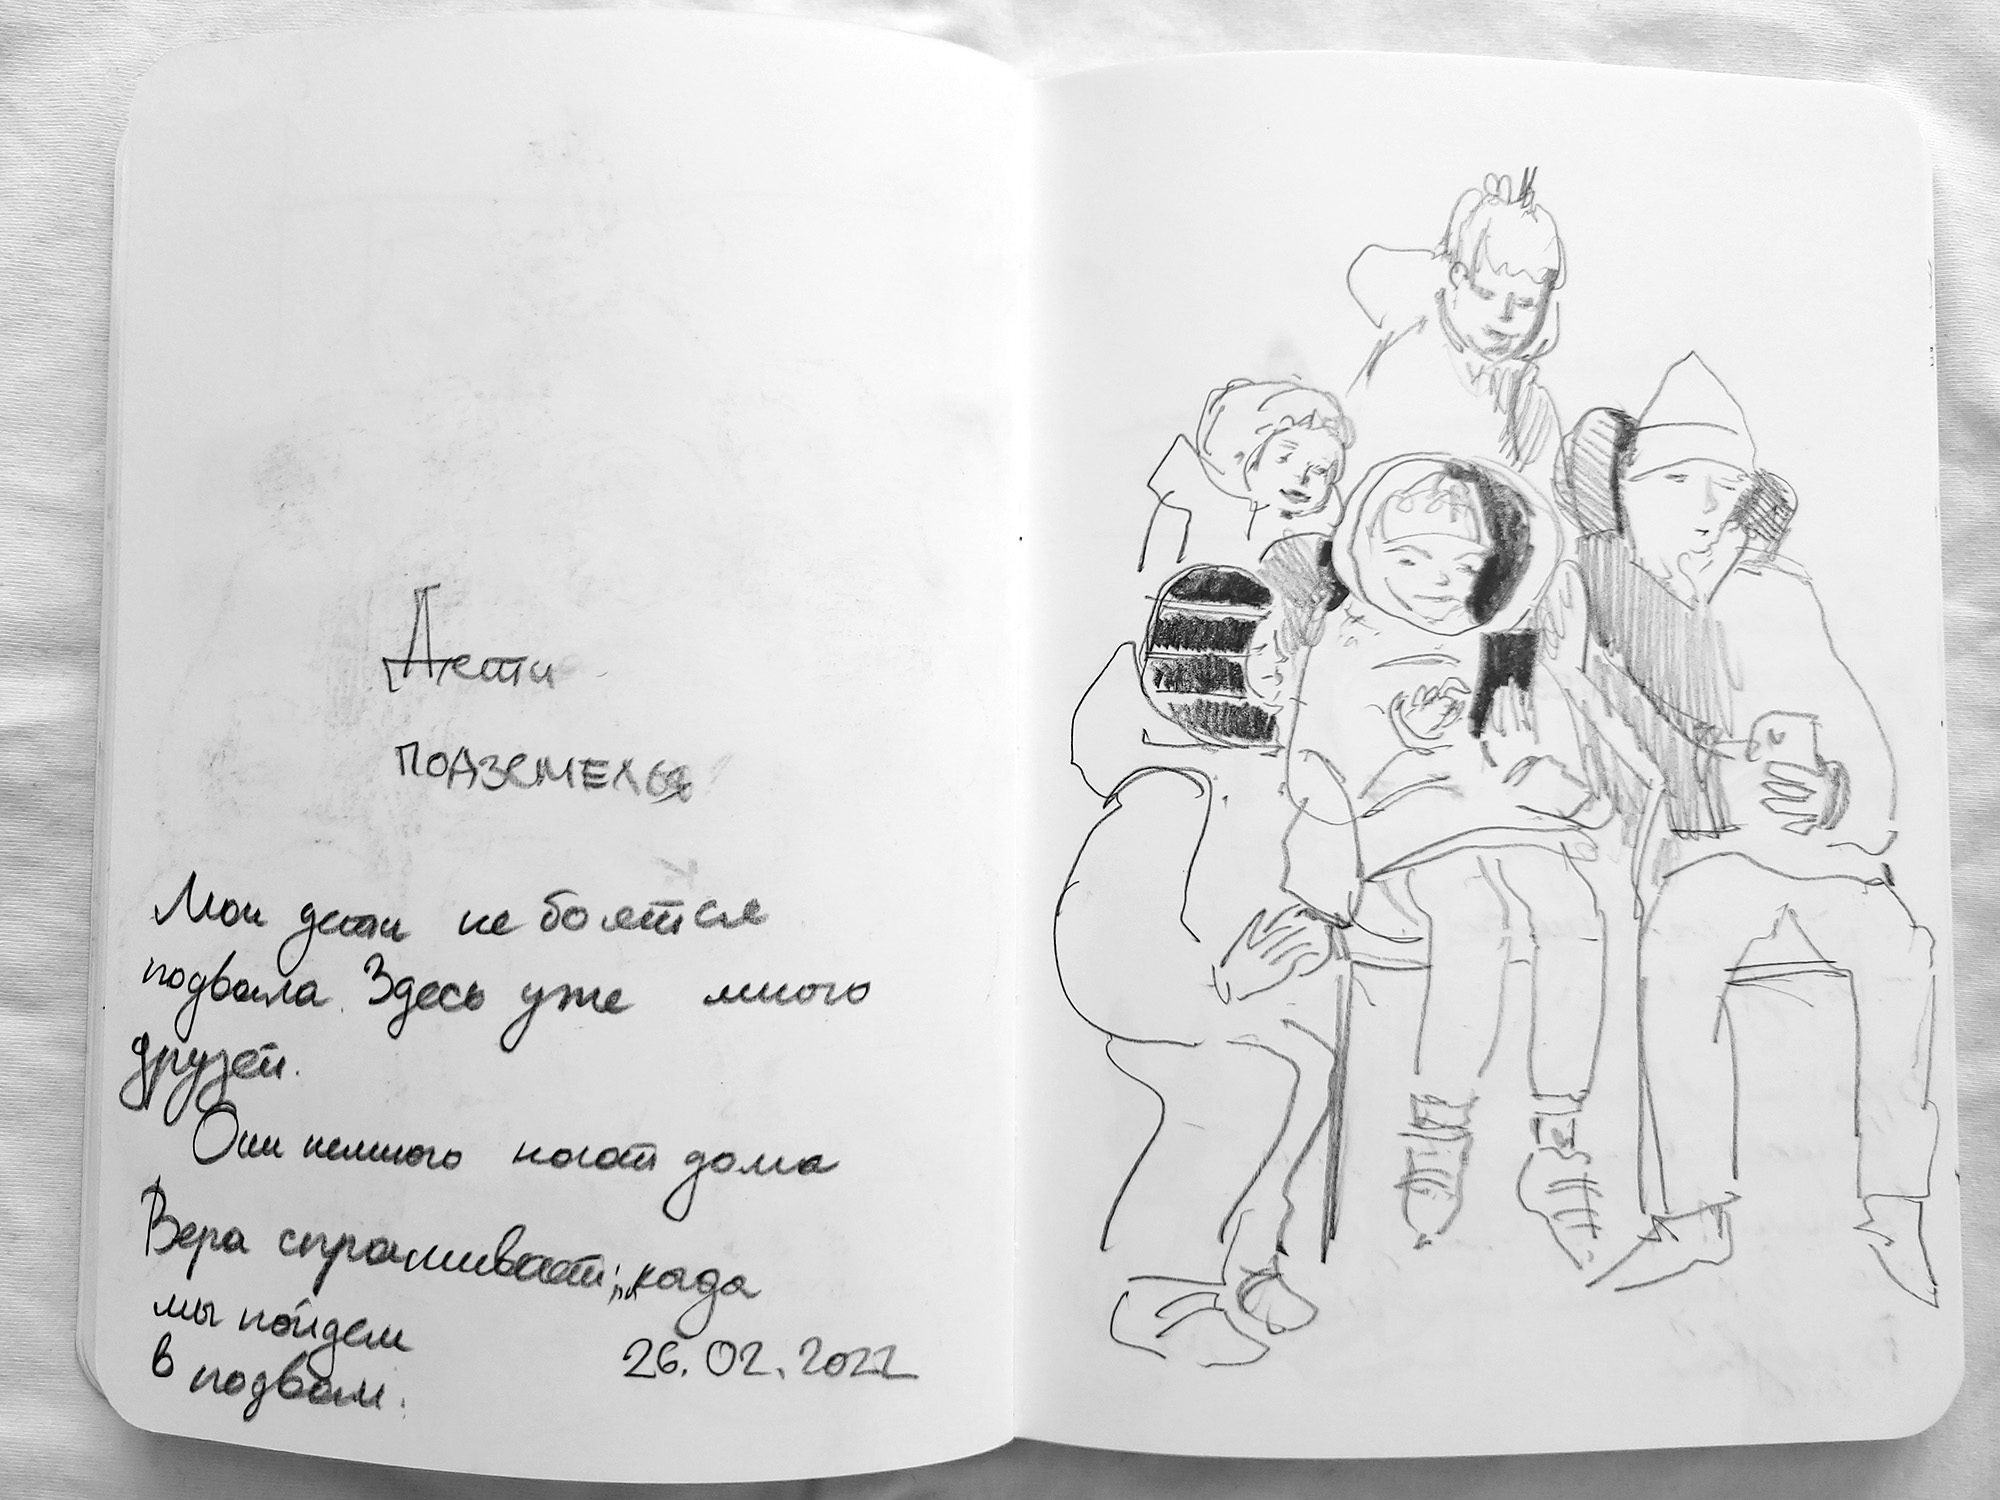 Дети
ПОДЗЕМЕЛЬЯ
Мои дети не боятся
подвала. Здесь уже много
друзей.
Они немного дома
Вера спрашивает: „када
мы пойдем
в подвал.
26.02.2022